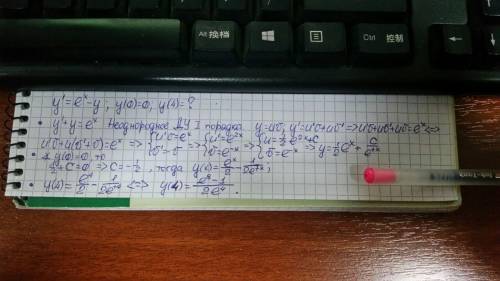 Alt 换档
Ctrl 控制
y' = eˣ - y ; y(0)=0, y(4)=?
• y' + y = eˣ Неоднородное ДУ I порядка. y = uυ; y' = u'υ + uυ' => u'υ + uυ' + uυ = eˣ <=>
u'υ + u(υ' + υ) = eˣ => { u'υ = eˣ υ' = -υ => { u' = e²ˣ υ = e⁻ˣ => { u = 1/2 e²ˣ + C υ = e⁻ˣ => y = 1/2 eˣ + C/eˣ
1/2 + C = 0 => C = -1/2, тогда y(x) = eˣ/2 - 1/2eˣ;
• y(4) = e⁴/2 - 1/2e⁴ <=> y(4) = e⁸-1/2e⁴.